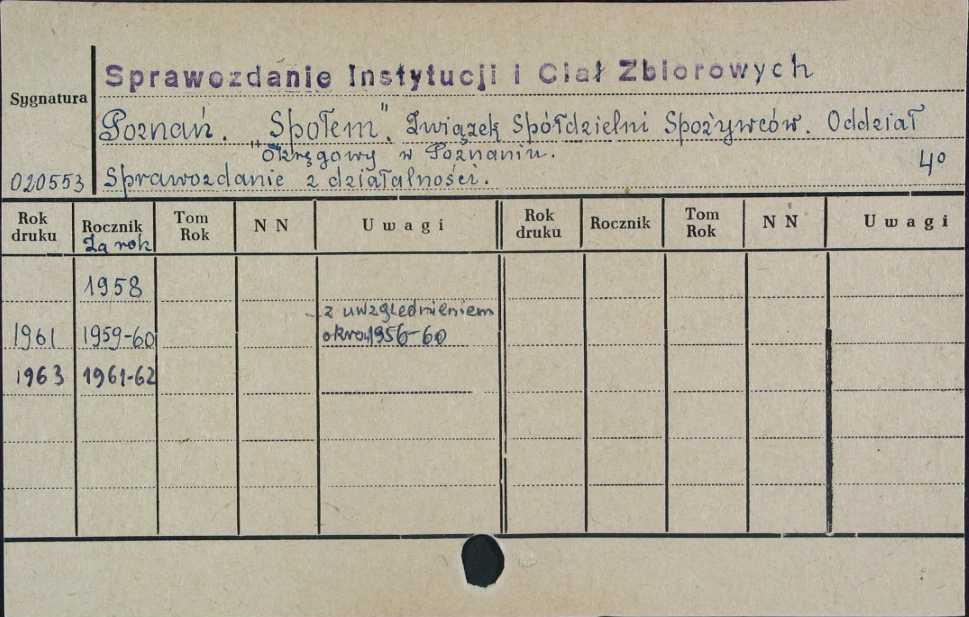 Sprawozdanie Instytucji i Ciał Zbiorowych
Sygnatura
Poznań. "Społem". Związek Spółdzielni Spożywców. Oddział
Okręgowy w Poznaniu.
4°
020553 Sprawozdanie z działalności.
Rok druku Rocznik Tom Rok N N Uwagi Rok druku Rocznik Tom Rok N N Uwagi
Za rok
1958
z uwzględnieniem
1961 1959-60 1956-60
1963 1961-62